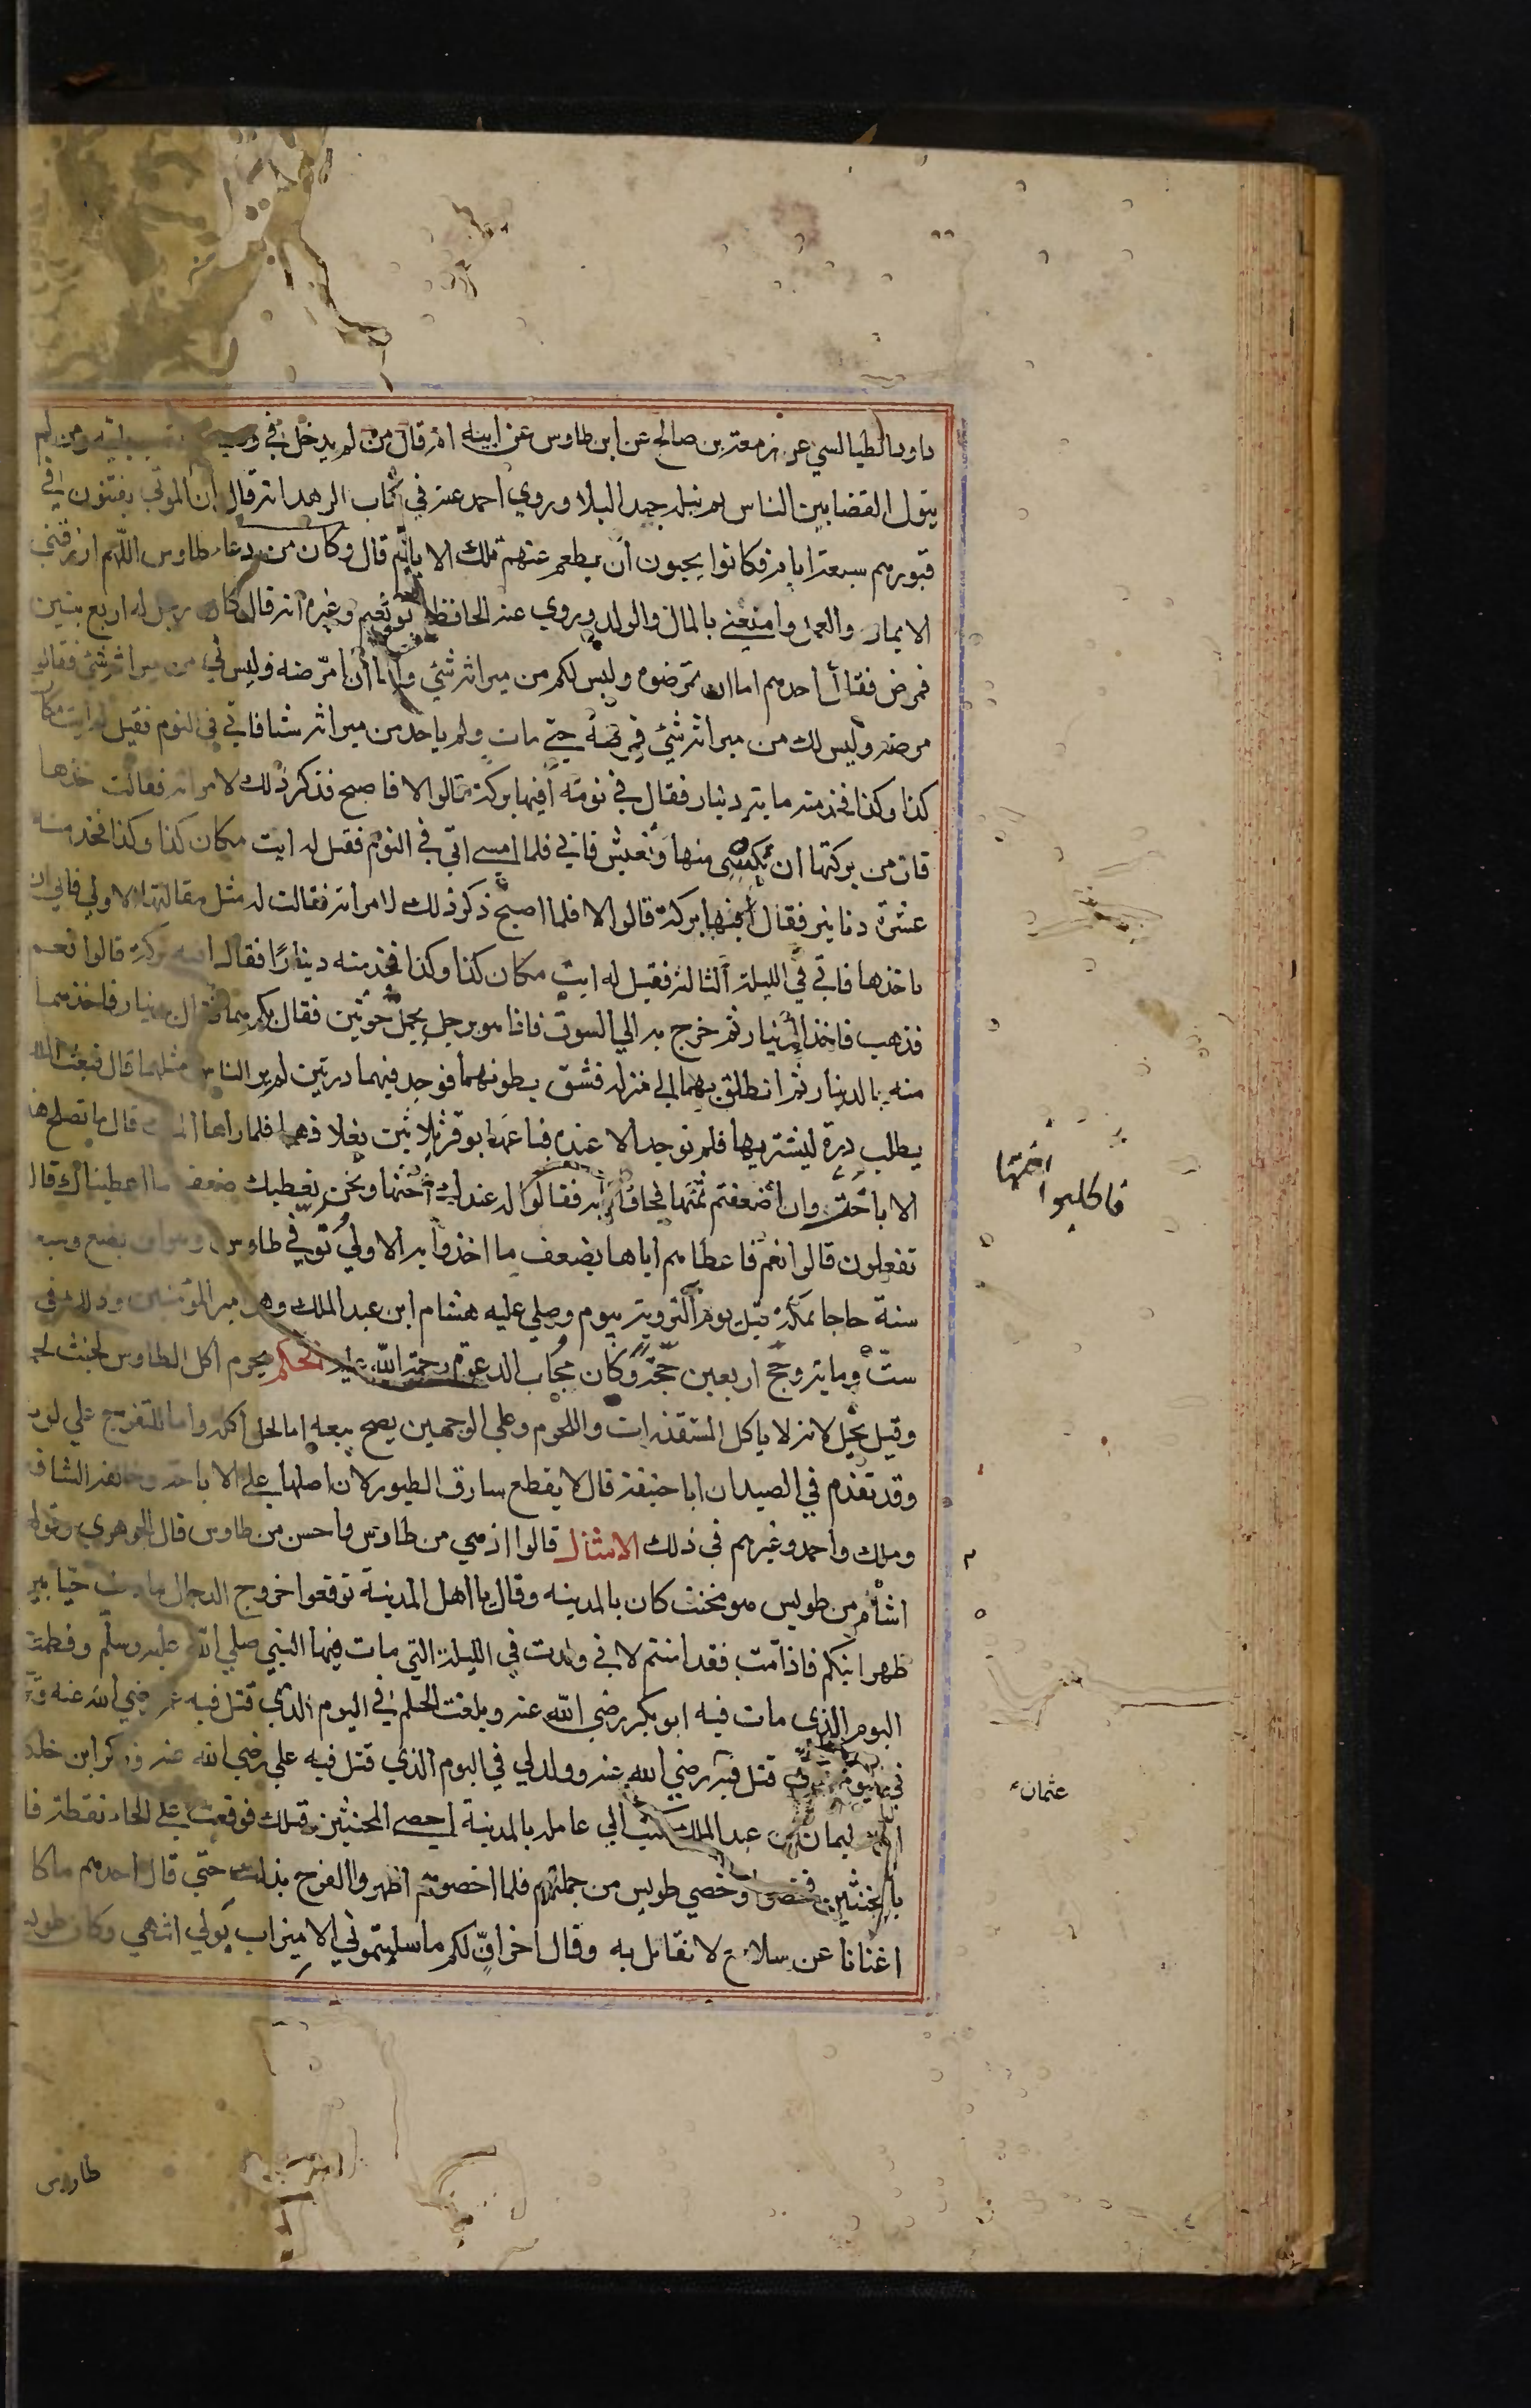 داود الطيالسي عن زمعة بن صالح عن ابن طاوس عن ابيه انه قال من لم يدخل في ومن لم
يتول القضا بين الناس لم ينله جهد البلا وروي احمد عنه في كتاب الزهد انه قال ان الموتي يفتنون في
قبورهم سبعة ايام فكانوا يحبون ان يطعم عنهم تلك الايام قال وكان من دعاء طاوس اللهم ارزقني
الايمان والعمل وامتعني بالمال والولد وروي عنه الحافظ ابو نعيم وغيره انه قال كان رجل له اربع بنين
فمرض فقال احدهم اما ان تمرضوه وليس لكم من ميراثه شئي واما ان امرضه وليس لي من ميراثه شئي فقالوا
مرضه وليس لك من ميراثه شئي فمرضه حتي مات ولم ياخذ من ميراثه شيا فاتي في النوم فقيل له ايت مكان
كذا وكذا فخذ منه ماية دينار فقال في نومه افيها بركة قالوا لا فاصبح فذكر ذلك لامراته فقالت خذها
فان من بركتها ان نكتسي منها ونعيش فابي فلما امسي اتي في النوم فقيل له ايت مكان كذا وكذا فخذ منه
عشرة دنانير فقال افيها بركة قالوا لا فلما اصبح ذكر ذلك لامراته فقالت له مثل مقالتها الاولي فابي ان
ياخذها فاتي في الليلة الثالثة فقيل له ايت مكان كذا وكذا فخذ منه دينارًا فقال افيه بركة قالوا نعم
فذهب فاخذ الدينار ثم خرج به الي السوق فاذا هو برجل يحمل حوتين فقال بكم هما فقال بدينار فاخذهما
منه بالدينار ثم انطلق بهما الي منزله فشق بطونهما فوجد فيهما درتين لم ير الناس مثلهما قال فبعث الملك
يطلب درة ليشتريها فلم توجد الا عنده فباعها بوقر ثلاثين بغلا ذهبا فلما راها الملك قال ما تصلح هذه
الا باخت وان اضعفتم ثمنها فجاؤا فقالوا له عندك اختها ونحن نعطيك ضعف ما اعطيناك قال
تفعلون قالوا نعم فاعطاهم اياها بضعف ما اخذوا به الاولي توفي طاوس وهو ابن بضع وسبعين
سنة حاجا بمكة قبل يوم التروية بيوم وصلي عليه هشام ابن عبد الملك وهو امير المؤمنين وذلك في
ستّ وماية وحج اربعين حجة وكان مجاب الدعوة رحمة الله عليه الحكم يحرم اكل الطاوس لخبث لحمه
وقيل يحل لانه لا ياكل المستقذرات واللحوم وعلي الوجهين يصح بيعه اما لحل اكله واما للتفرج علي لونه
وقد تقدم في الصيد ان ابا حنيفة قال لا يقطع سارق الطيور لان اصلها علي الاباحة وخالفه الشافعي
وملك واحمد وغيرهم في ذلك الامثال قالوا ازهي من طاوس واحسن من طاوس قال الجوهري وقولهم
اشأم من طويس هو مخنث كان بالمدينه وقال يا اهل المدينة توقعوا خروج الدجال ما دمت حيا بين
ظهرانيكم فاذا مت فقد امنتم لاني ولدت في الليلة التي مات فيها النبي صلي الله عليه وسلم وفطمت
اليوم الذي مات فيه ابو بكر رضي الله عنه وبلغت الحلم في اليوم الذي قتل فيه عمر رضي الله عنه
في اليوم الذي قتل فيه رضي الله عنه وولد لي في اليوم الذي قتل فيه علي رضي الله عنه وذكر ابن خلكان
ان سليمان بن عبد الملك كتب الي عامله بالمدينة احصي المخنثين قبلك فوقعت علي الحاء نقطة
بالمخنثين فخصوا وخصي طويس من جملتهم فلما اخصوهم اظهروا الفرح بذلك حتي قال احدهم ما كان
اغنانا عن سلاح لا نقاتل به وقال اخر افّ لكم ما سلبتموني الا ميزاب بولي انتهي وكان طويس
فاطلبوا اختها
عثمان
طاوس